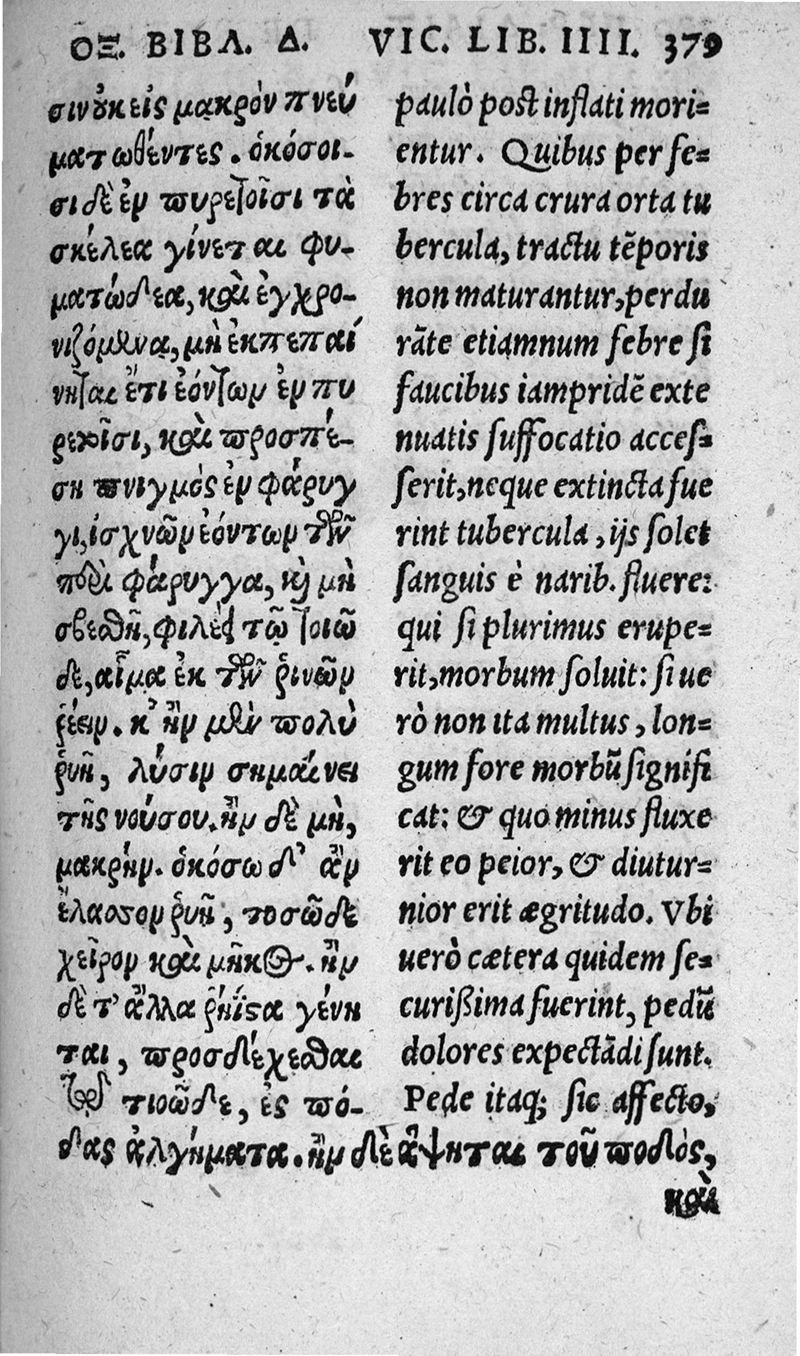 ΟΞ. ΒΙΒΛ. Δ. VIC. LIB. IIII. 379
σινοὐκ εἰς μακρὸν πνευ
ματωθέντες. ὁκόσοι-
σι δὲ ἐν πυρετοῖσι τὰ
σκέλεα γίνεται φυ-
ματώδεα, καὶ ἐγχρο-
νιζόμενα, μὴ ἐκπεπαί
νηται ἔτι ἐόντων ἐν πυ
ρετοῖσι, καὶ προσπέ-
ση πνιγμὸς ἐν φάρυγ
γι, ἰσχνῶν ἐόντων τῶν
φάρυγγα, κὶ μὴ
σβεσθῆ, φιλέει τῷ τοιῶ
δε, αἷμα ἐκ τῶν ῥινῶν
ῥέειν. κ' ἢν μὲν πολὺ
ῥυῆ, λύσιν σημαίνει
τῆς νούσου. ἢν δὲ μὴ,
μακρήν. ὁκόσω δ' ἂν
ἔλασσον ῥυῆ, τοσῶδε
χεῖρον καὶ μῆκος. ἢν
δὲ τ' ἄλλα ῥήϊστα γένη
ται, προσδέχεσθαι
τιοῶδε, ἐς πό-
δας ἀλγήματα. ἢν δὲ ἅψηται τοῦ ποδὸς,
καὶ
paulò post inflati mori=
entur. Quibus per fe=
bres circa crura orta tu
bercula, tractu tēporis
non maturantur, perdu
rāte etiamnum febre si
faucibus iampridē exte
nuatis suffocatio acces=
serit, neque extincta fue
rint tubercula, ijs solet
sanguis è narib. fluere:
qui si plurimus erupe=
rit, morbum soluit: si ue
rò non ita multus, lon=
gum fore morbū signifi
cat: & quo minus fluxe
rit eo peior, & diutur=
nior erit ægritudo. Vbi
uerò cætera quidem se=
curißima fuerint, pedū
dolores expectādi sunt.
Pede itaq; sic affecto,